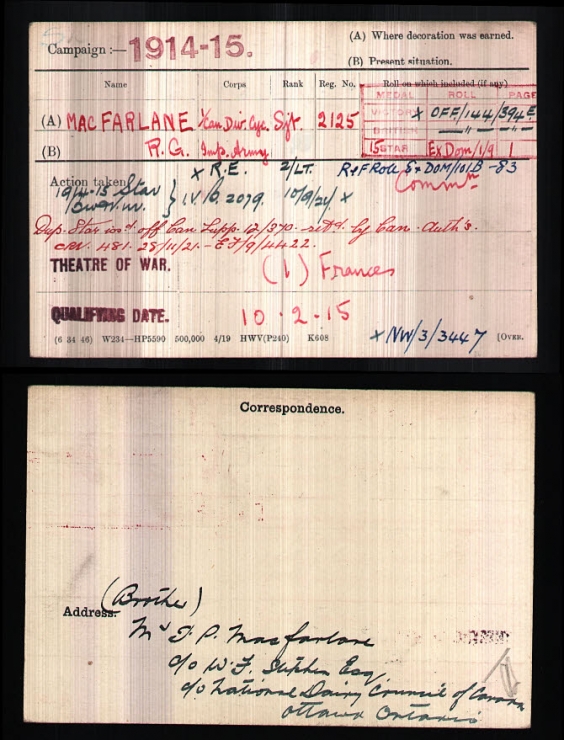 Campaign :— 1914-15.
(A) Where decoration was earned.
(B) Present situation.
Name Corps Rank Reg. No. Roll on which included (if any)
MEDAL ROLL PAGE
(A) MACFARLANE Can. Div. Cyc. Sjt. 2125
VICTORY X OFF/144/394E
BRITISH — " — — " —
(B) R.G. Imp. Army
15 STAR Ex Dom/1/9 1
Action taken X R.E. 2/LT. R&F Roll S+DOM/101/B-83
Comm.
1914-15 Star IV/B. 2079. 10/9/21. X
Dup. Star iss'd off Can. Supp. 12/370. ret'd. by Can. Auth's.
CRV. 481. 28/11/21. - EF/9/4422.
THEATRE OF WAR. (1) France
QUALIFYING DATE. 10.2.15
X NW/3/3447
(6 34 46) W234—HP5590 500,000 4/19 HWV(P240) K608 (OVER.
Correspondence.
(Brother)
Address.
Mr J. P. Macfarlane
c/o W. F. Stephen Esq
c/o National Dairy Council of Canada
Ottawa Ontario